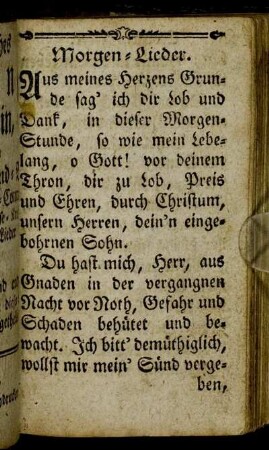 Morgen-Lieder.
Aus meines Herzens Grun-
de sag' ich dir Lob und
Dank, in dieser Morgen-
Stunde, so wie mein Lebe-
lang, o Gott! vor deinem
Thron, dir zu Lob, Preis
und Ehren, durch Christum,
unsern Herren, dein'n einge-
bohrnen Sohn.
Du hast mich, Herr, aus
Gnaden in der vergangnen
Nacht vor Noth, Gefahr und
Schaden behütet und be-
wacht. Ich bitt' demüthiglich,
wollst mir mein' Sünd verge-
ben,